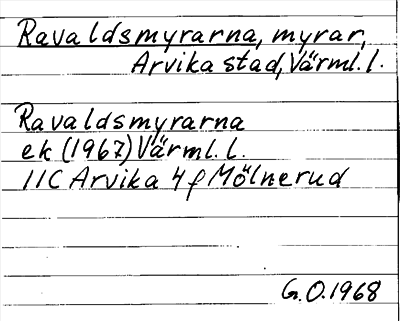 Ravaldsmyrarna, myrar,
Arvika stad, Värml. l.
Ravaldsmyrarna
ek (1967) Värml. l.
11C Arvika 4 f Mölnerud
G.O. 1968